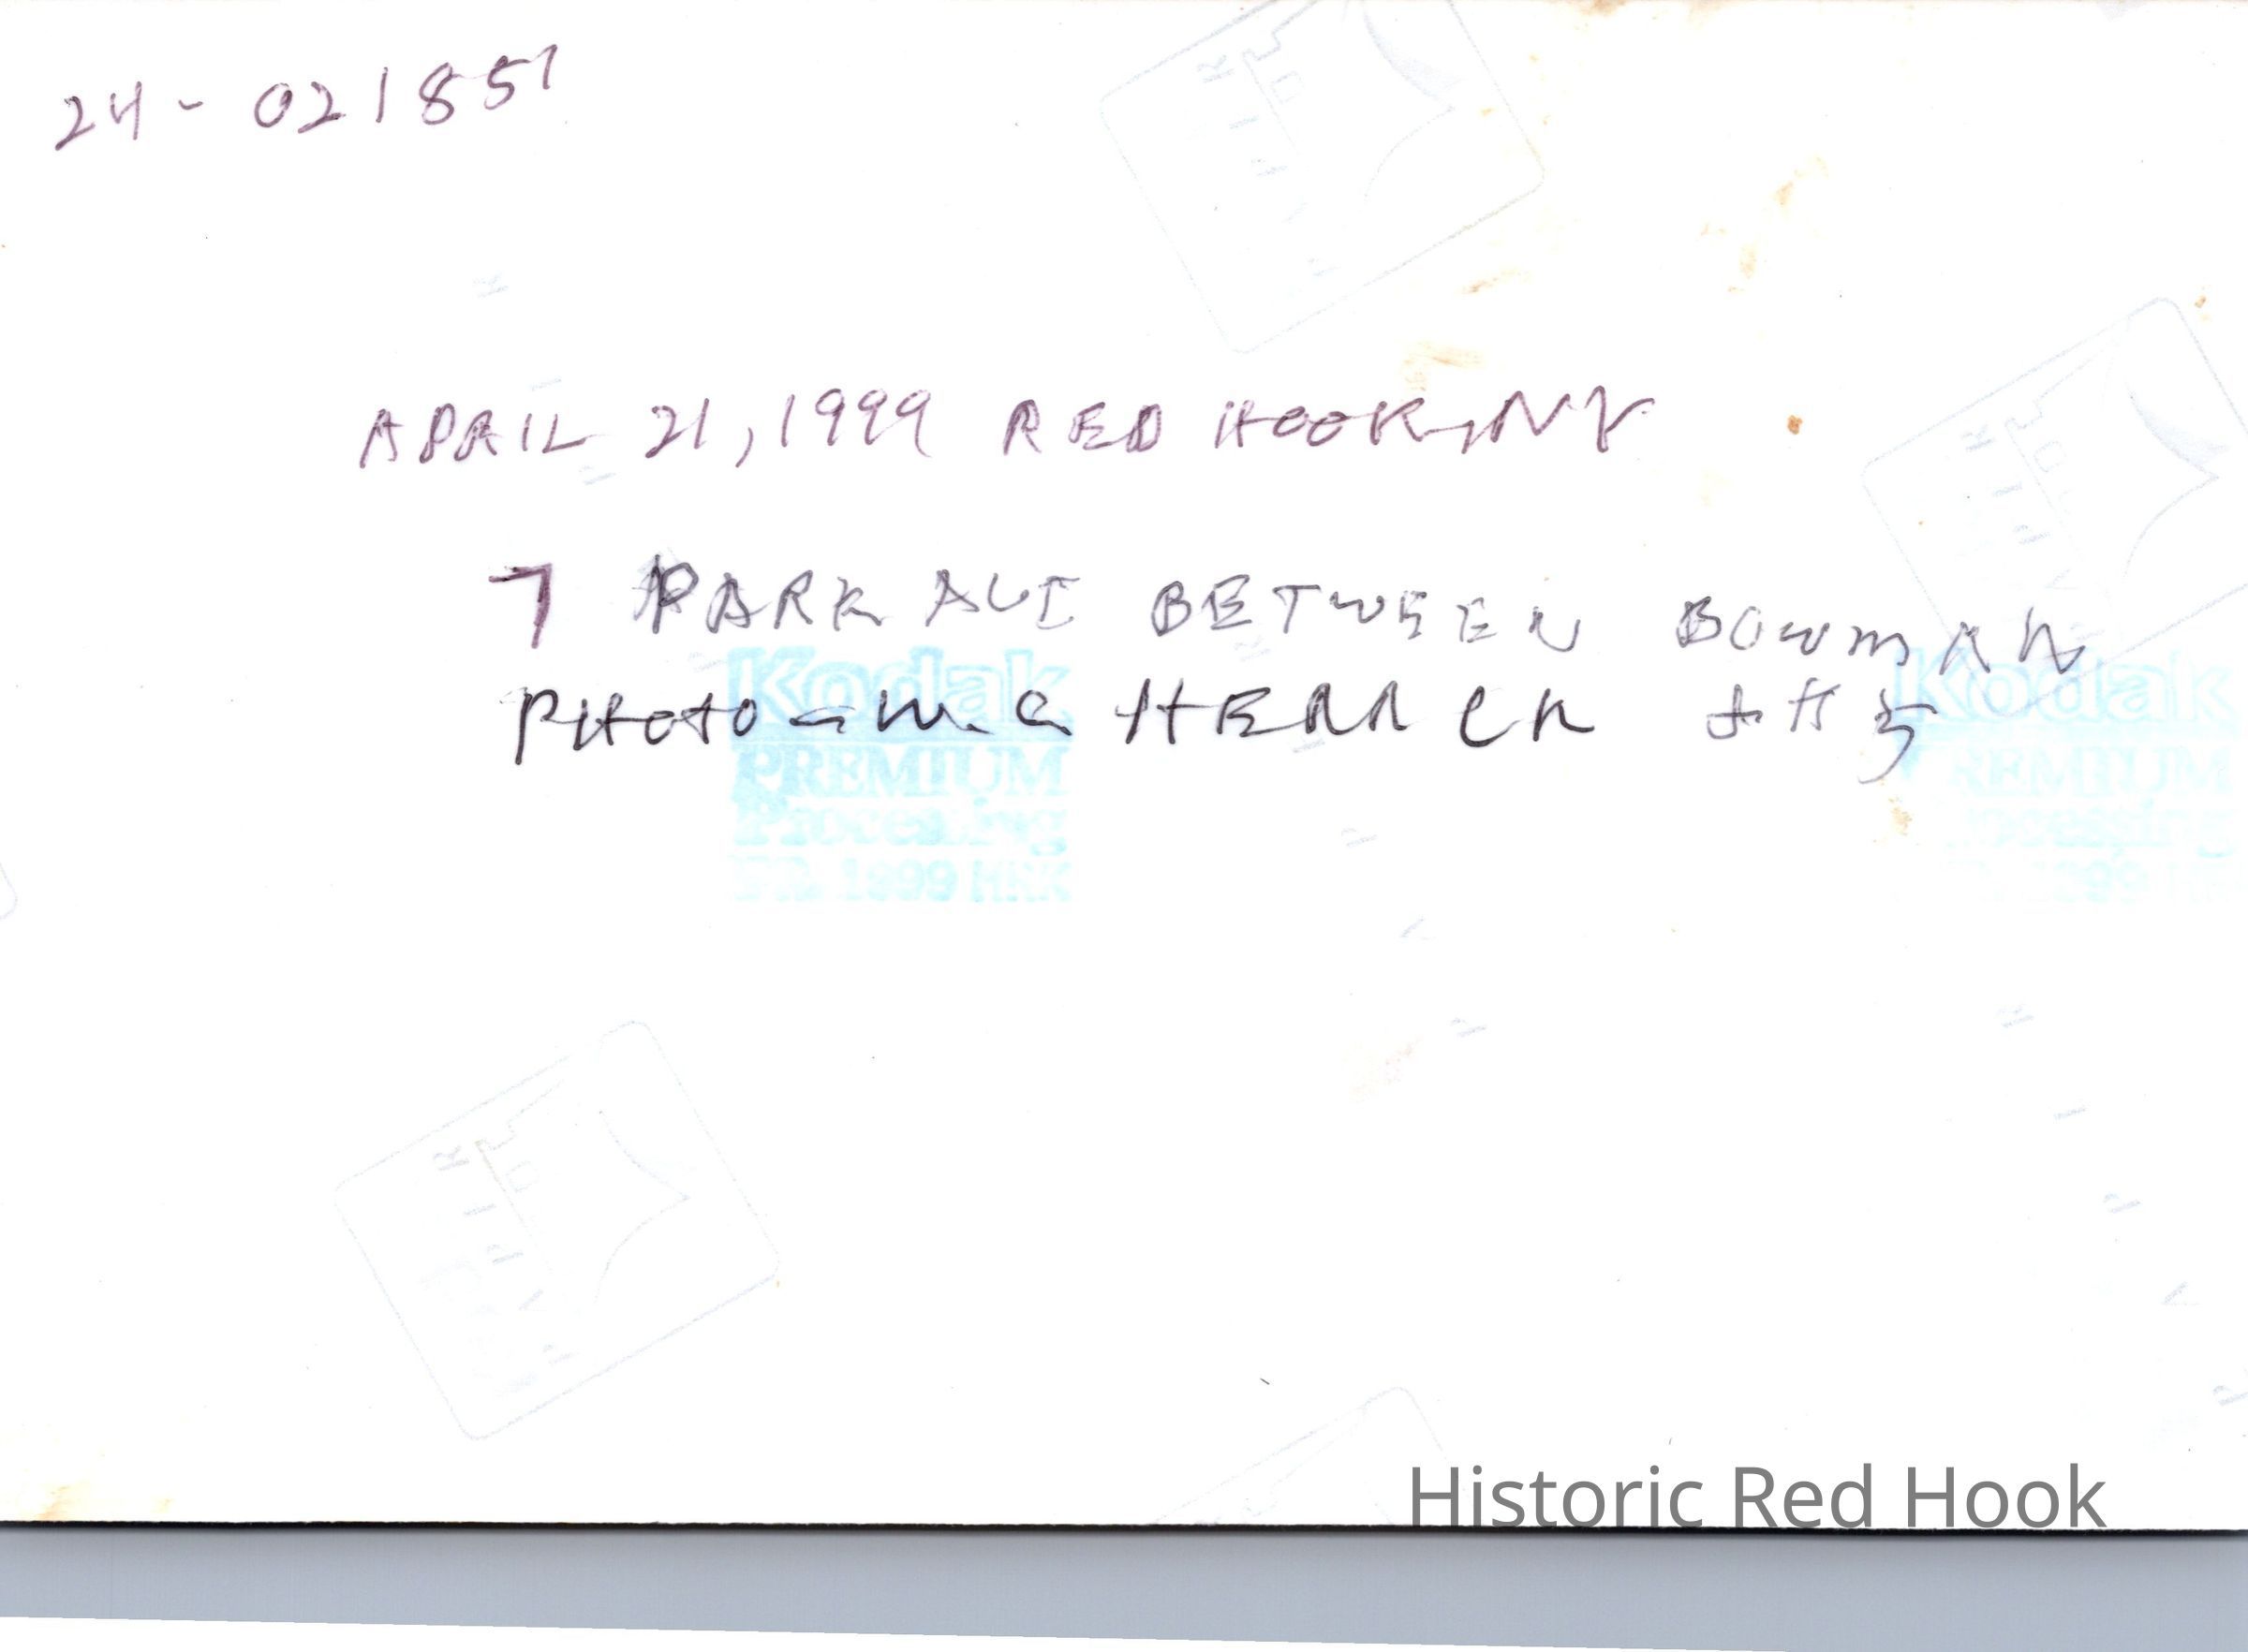 24-021851
APRIL 21, 1999 RED HOOK, NY
7 PARK AVE BETWEEN BOWMAN
PHOTO - W. C HERRICK
Kodak
PREMIUM
Processing
1999
Kodak
PREMIUM
Processing
Historic Red Hook